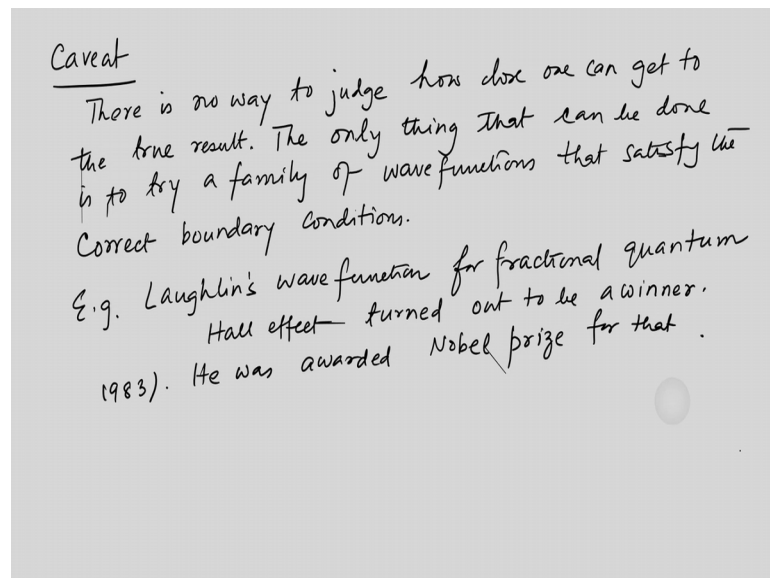 Caveat
There is no way to judge how close one can get to
the true result. The only thing that can be done
is to try a family of wave functions that satisfy the
Correct boundary Conditions.
E.g. Laughlin's wave function for fractional quantum
Hall effect turned out to be a winner.
1983). He was awarded Nobel prize for that.